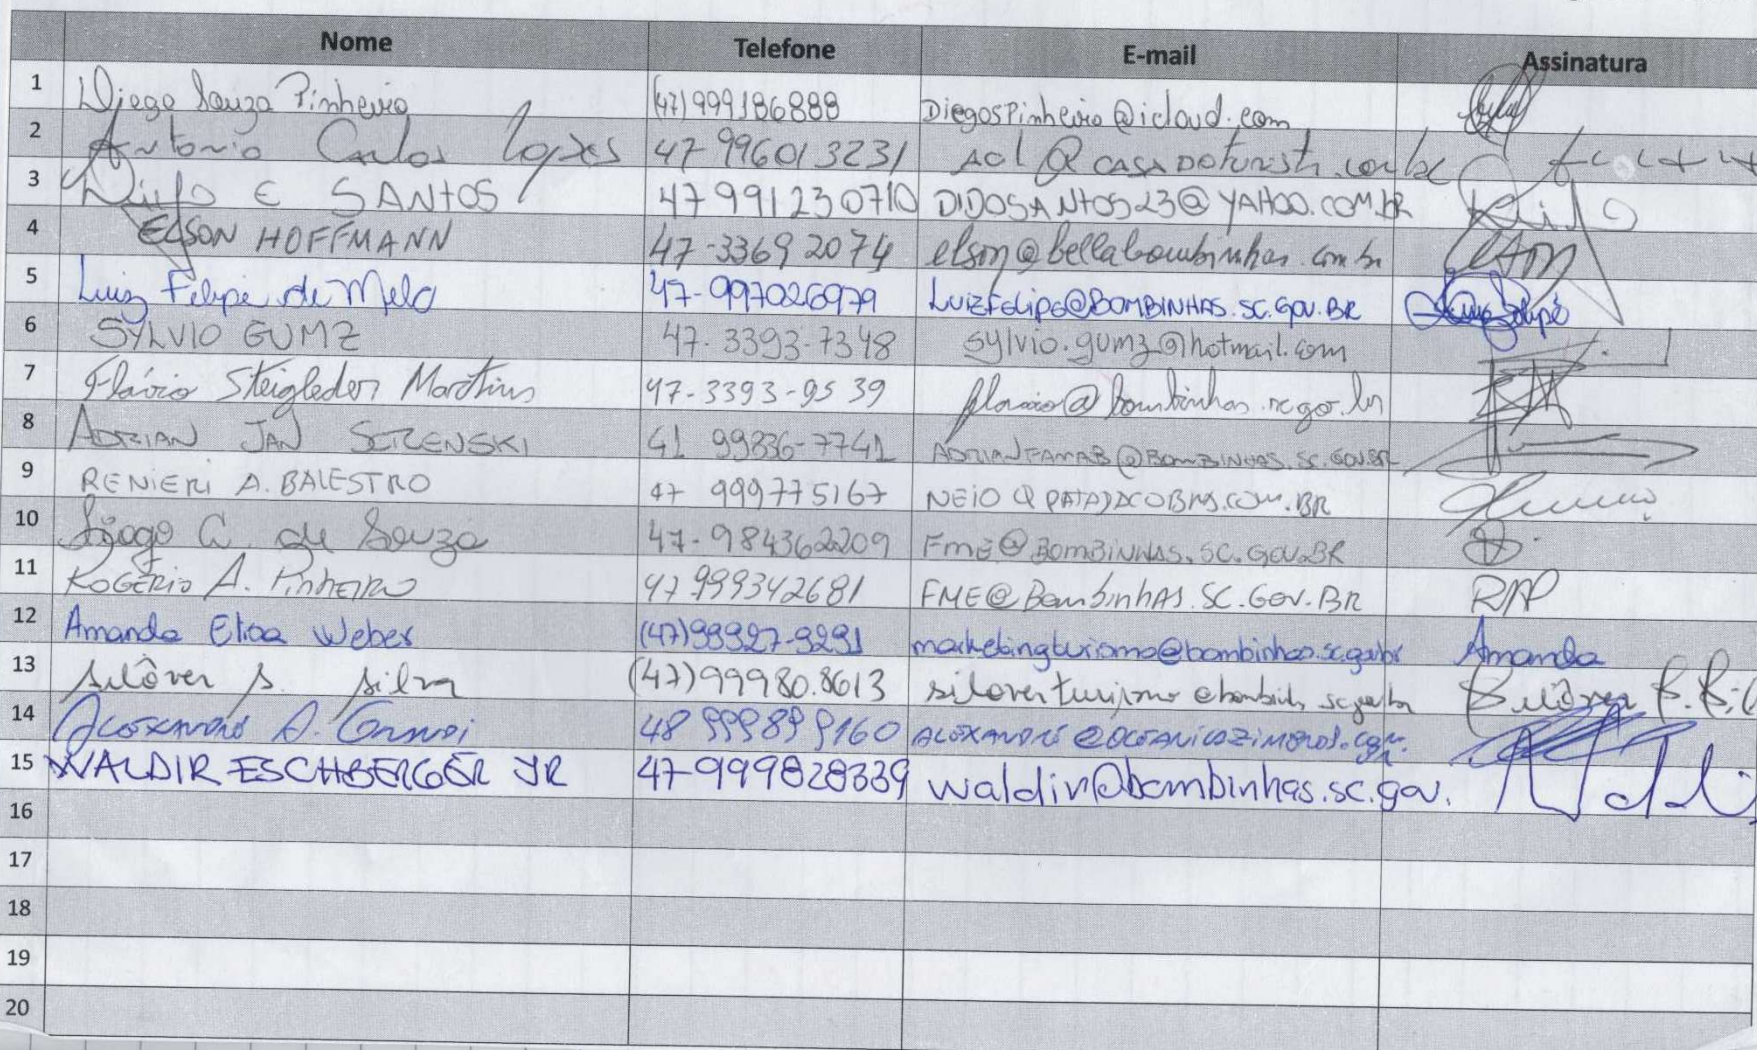 Nome Telefone E-mail Assinatura
1 Diego Souza Pinheiro (47)999186888 DiegosPinheiro@icloud.com
2 Antonio Carlos Lopes 47 996013231
3 E SANTOS 47 991230710 DIDOSANTOS23@YAHOO.COM.BR
4 ELSON HOFFMANN 47-3369 2074 elson@bellabombinhas.com.br Elson
5 Luiz Felipe de Melo 47-997026979 LUIZFELIPE@BOMBINHAS.SC.GOV.BR Luiz Felipe
6 SYLVIO GUMZ 47.3393-7348 sylvio.gumz@hotmail.com
7 Flávio Steigleder Martins 47-3393-9539 flavio@bombinhas.sc.gov.br
8 ADRIAN JAN 41 99836-7741 ADRIANFAMAB@BOMBINHAS.SC.GOV.BR
9 RENIERI A. BALESTRO 47 999775167
10 Diogo C. de Souza 47-984362209 FME@BOMBINHAS.SC.GOV.BR
11 ROGÉRIO A. PINHEIRO 47 999342681 FME@BombinhAS.SC.GOV.BR RAP
12 Amanda Elisa Weber (47)99927-9291 marketingturismo@bombinhas.sc.gov.br Amanda
13 Silôver S. Silva (47)99980.8613
14 A. 48 999899160
15 WALDIR ESCHBERGER JR 47-999828339 waldir@bombinhas.sc.gov.
16
17
18
19
20